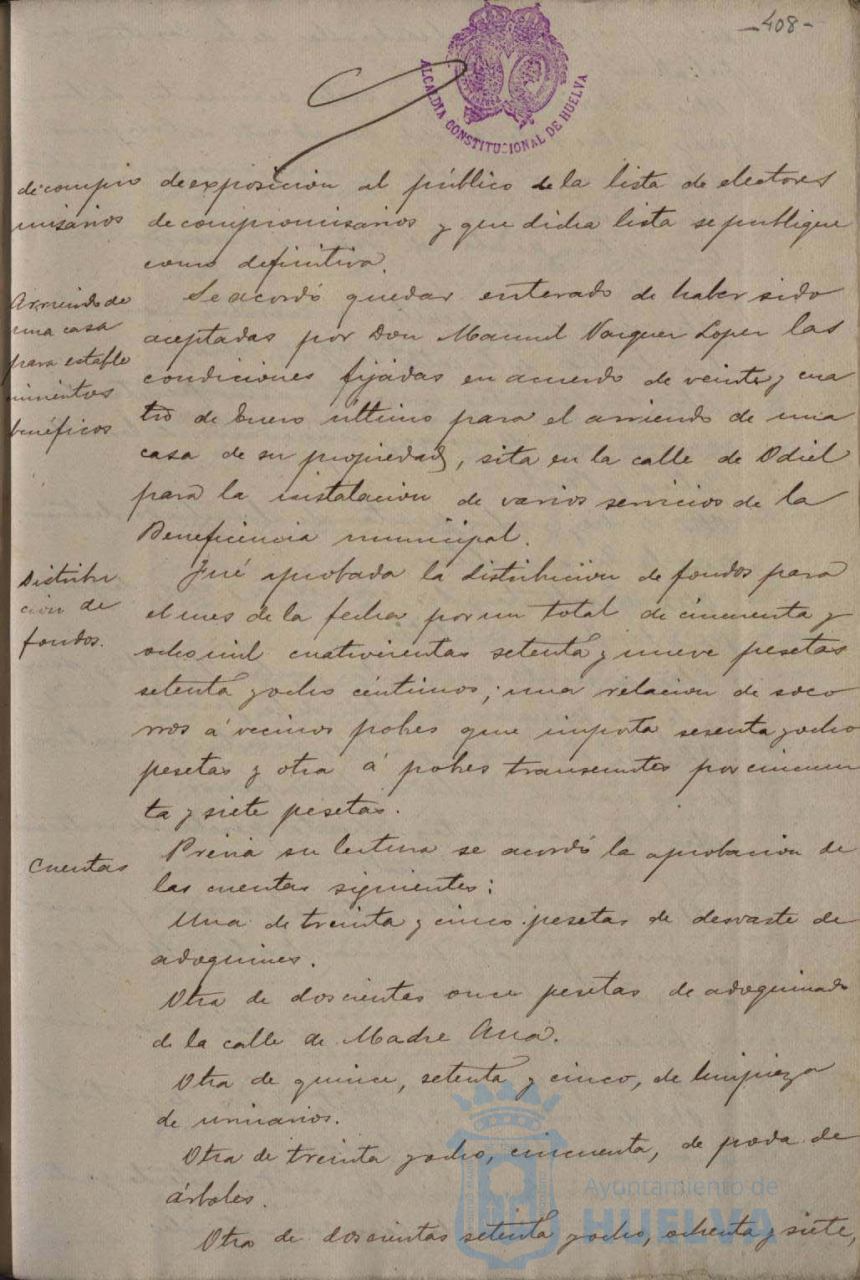 -408-
ALCALDIA CONSTITUCIONAL DE HUELVA
de compro
misarios
de exposición al público de la lista de electores
de compromisarios y que dicha lista se publique
como definitiva.
Arriendo de
una casa
para estable
cimientos
benéficos
Se acordó quedar enterado de haber sido
aceptadas por Don Manuel Vazquez Lopez las
condiciones fijadas en acuerdo de veinte y cua
tro de Enero último para el arriendo de una
casa de su propiedad, sita en la calle de Odiel
para la instalacion de varios servicios de la
Beneficencia municipal.
Distribu
ción de
fondos.
Fué aprobada la distribucion de fondos para
el mes de la fecha por un total de cincuenta y
ocho mil cuatrocientas setenta y nueve pesetas
setenta y ocho céntimos; una relacion de soco
rros á vecinos pobres que importa sesenta y ocho
pesetas y otra á pobres transeuntes por cincuen
ta y siete pesetas.
Cuentas
Previa su lectura se acordó la aprobacion de
las cuentas siguientes:
Una de treinta y cinco pesetas de desvaste de
adoquines.
Otra de doscientas once pesetas de adoquinado
de la calle de Madre Ana.
Otra de quince, setenta y cinco, de limpieza
de urinarios.
Otra de treinta y ocho, cincuenta, de poda de
árboles.
Otra de doscientas setenta y ocho, ochenta y siete,
Ayuntamiento de
HUELVA